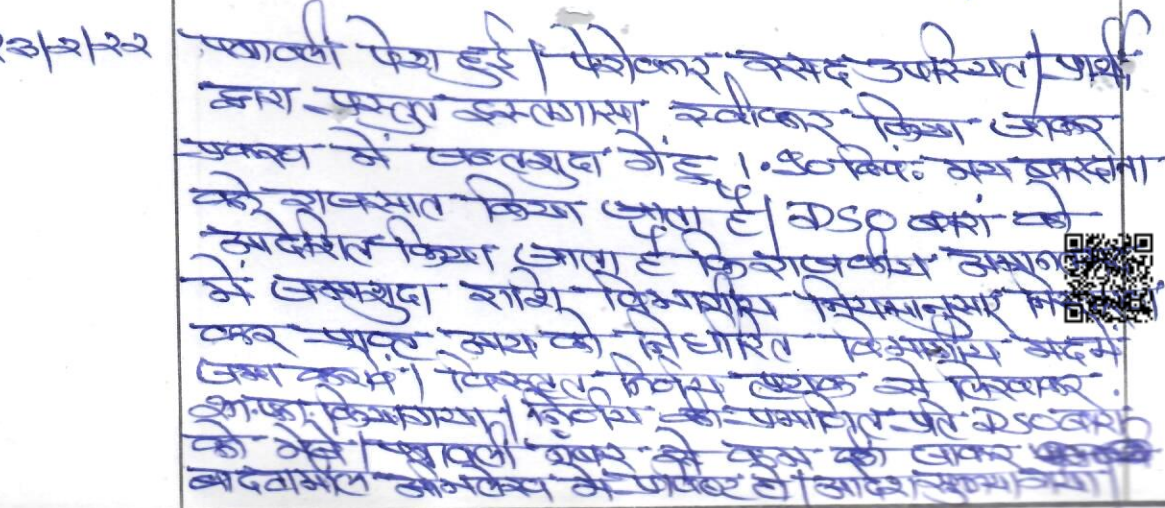 23/2/22 पत्रावली पेश हुई। पेरोकार रसद उपस्थित। प्रार्थी
द्वारा प्रस्तुत इस्तगासा स्वीकार किया जाकर
प्रकरण में जब्तशुदा गेंहू 1.50 क्विं. मय बारदाना
को राजसात किया जाता है। DSO बारां को
आदेशित किया जाता है कि राजकीय अमानत
में जमाशुदा राशि विभागीय नियमानुसार
कर प्राप्त आय को निर्धारित विभागीय मद में
जमा करावें। विस्तृत निर्णय पृथक से लिखवाकर
शा.फा. किया गया। निर्णय की प्रमाणित प्रति DSO बारां
को भेजें। पत्रावली नंबर से कम की जाकर
बाद तामील अभिलेख में जमा हो। आदेश सुनाया गया।